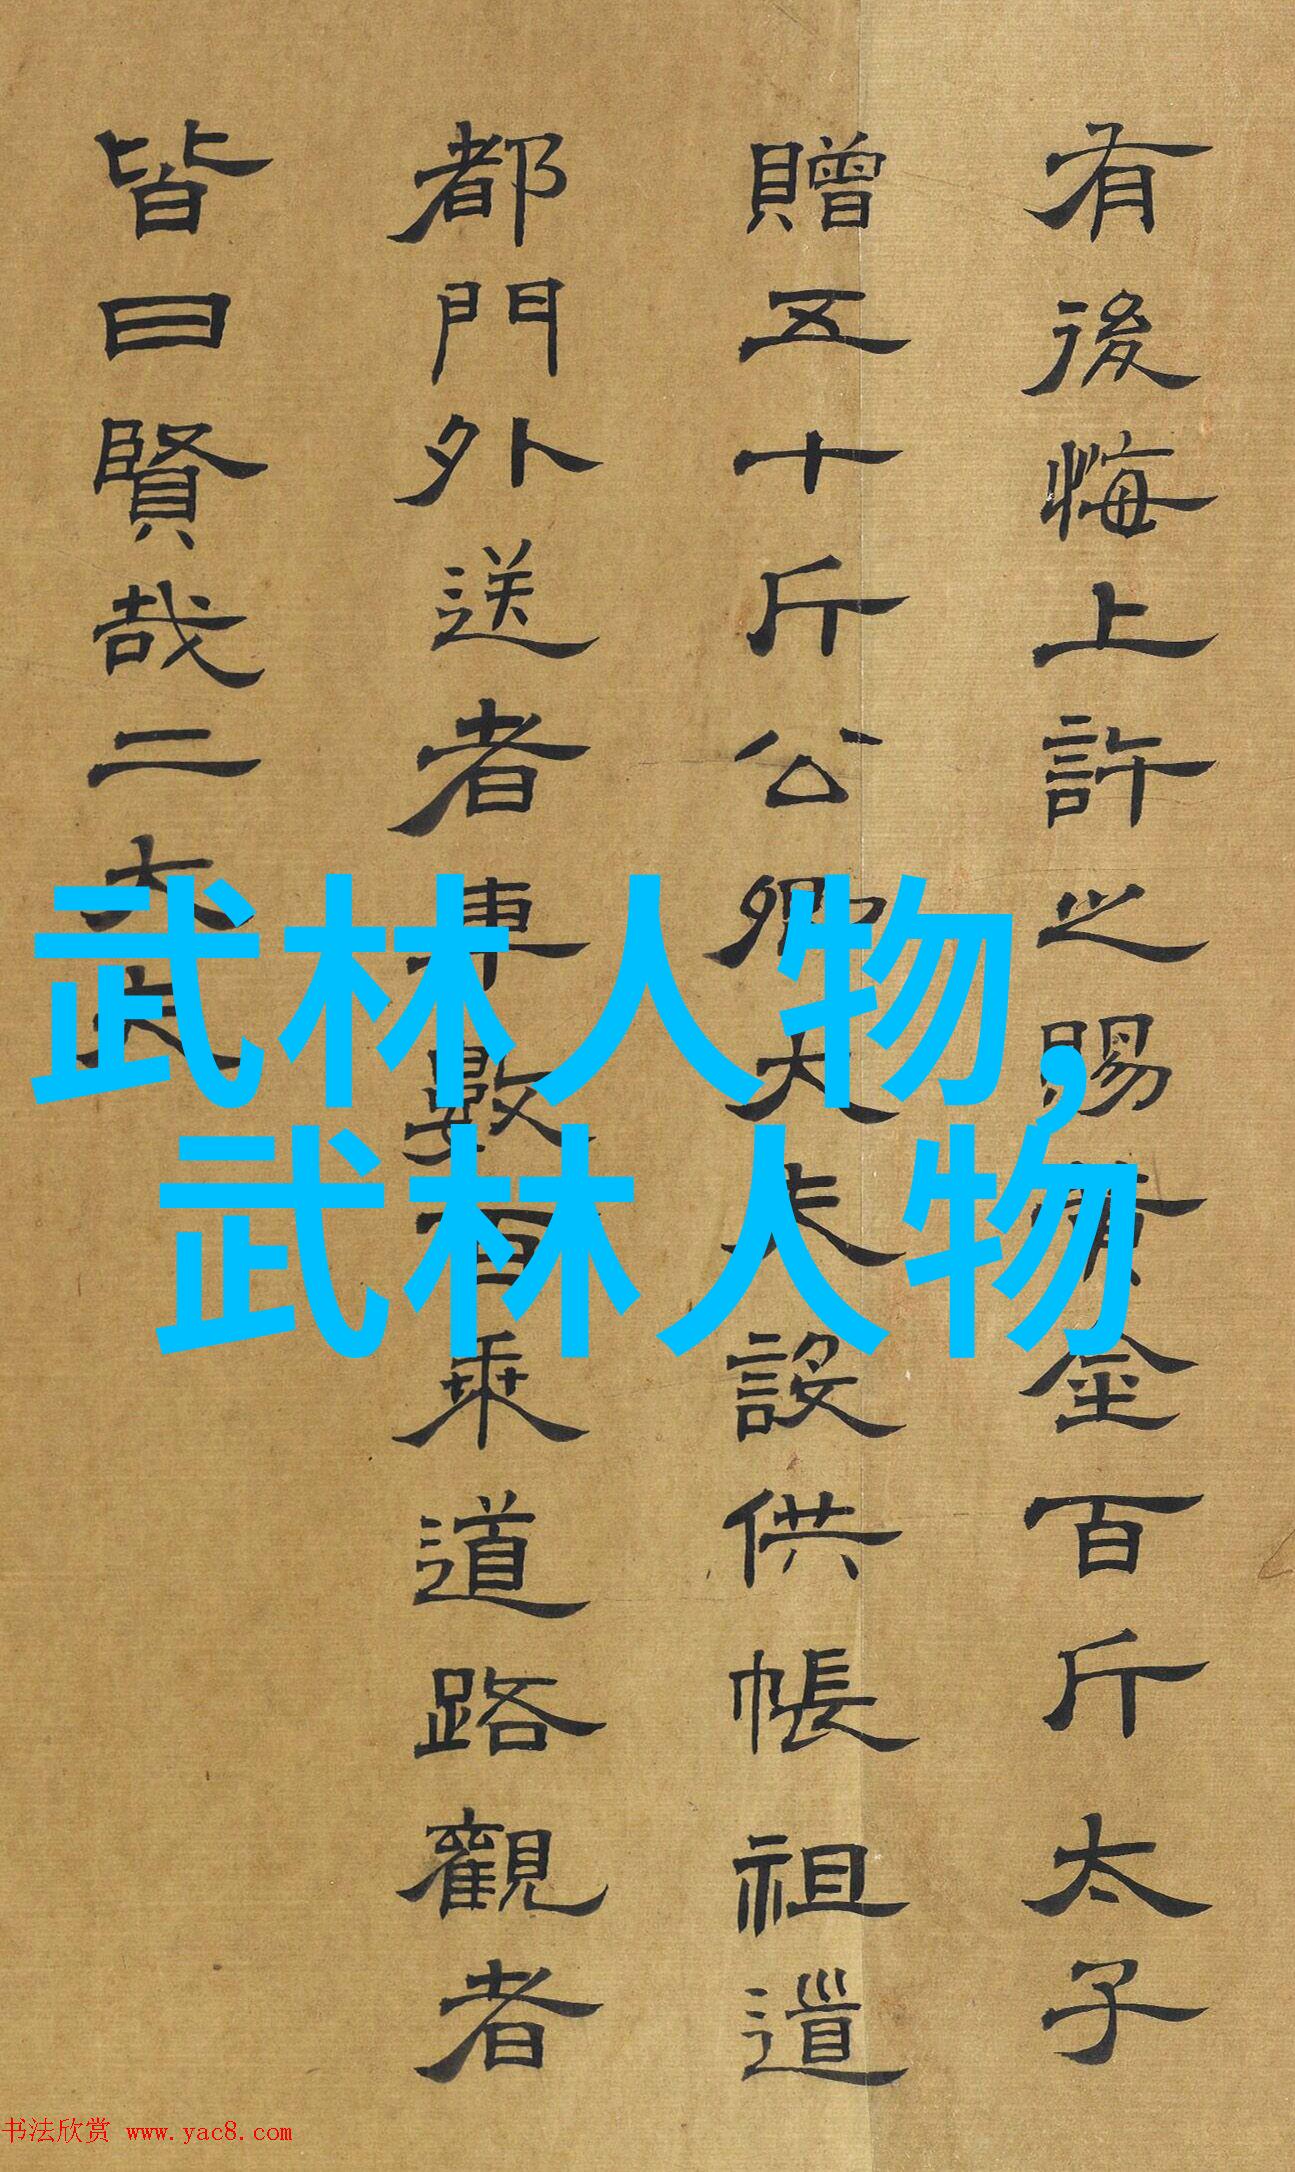 有後悔上許之賜黃金百斤太子
贈五十斤公卿大夫設供帳祖道
都門外送者車數百乘道路觀者
皆曰賢哉二大夫
武林人物,
武林人物
书法欣赏 www.yac8.com